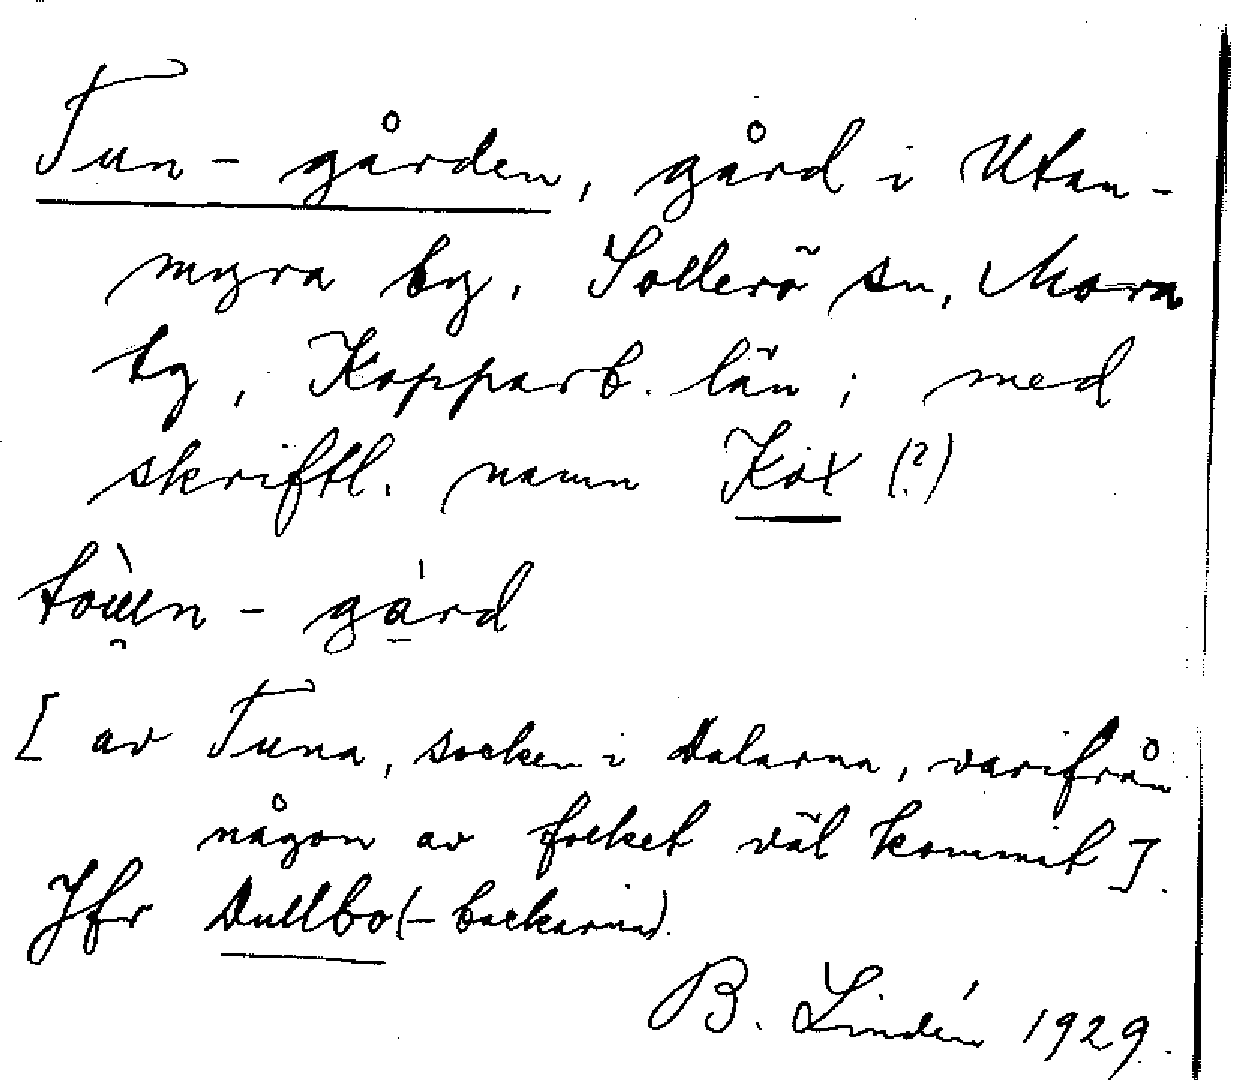 Tun-gården, gård i Utan-
myra by, Sollerö sn, Mora
tg, Kopparb. län; med
skriftl. namn Kox (?)
- gård
[ av Tuna, socken i Dalarna, varifrån
någon av folket väl kommit ].
Jfr Dullbo (-backarna).
B. Lindén 1929.